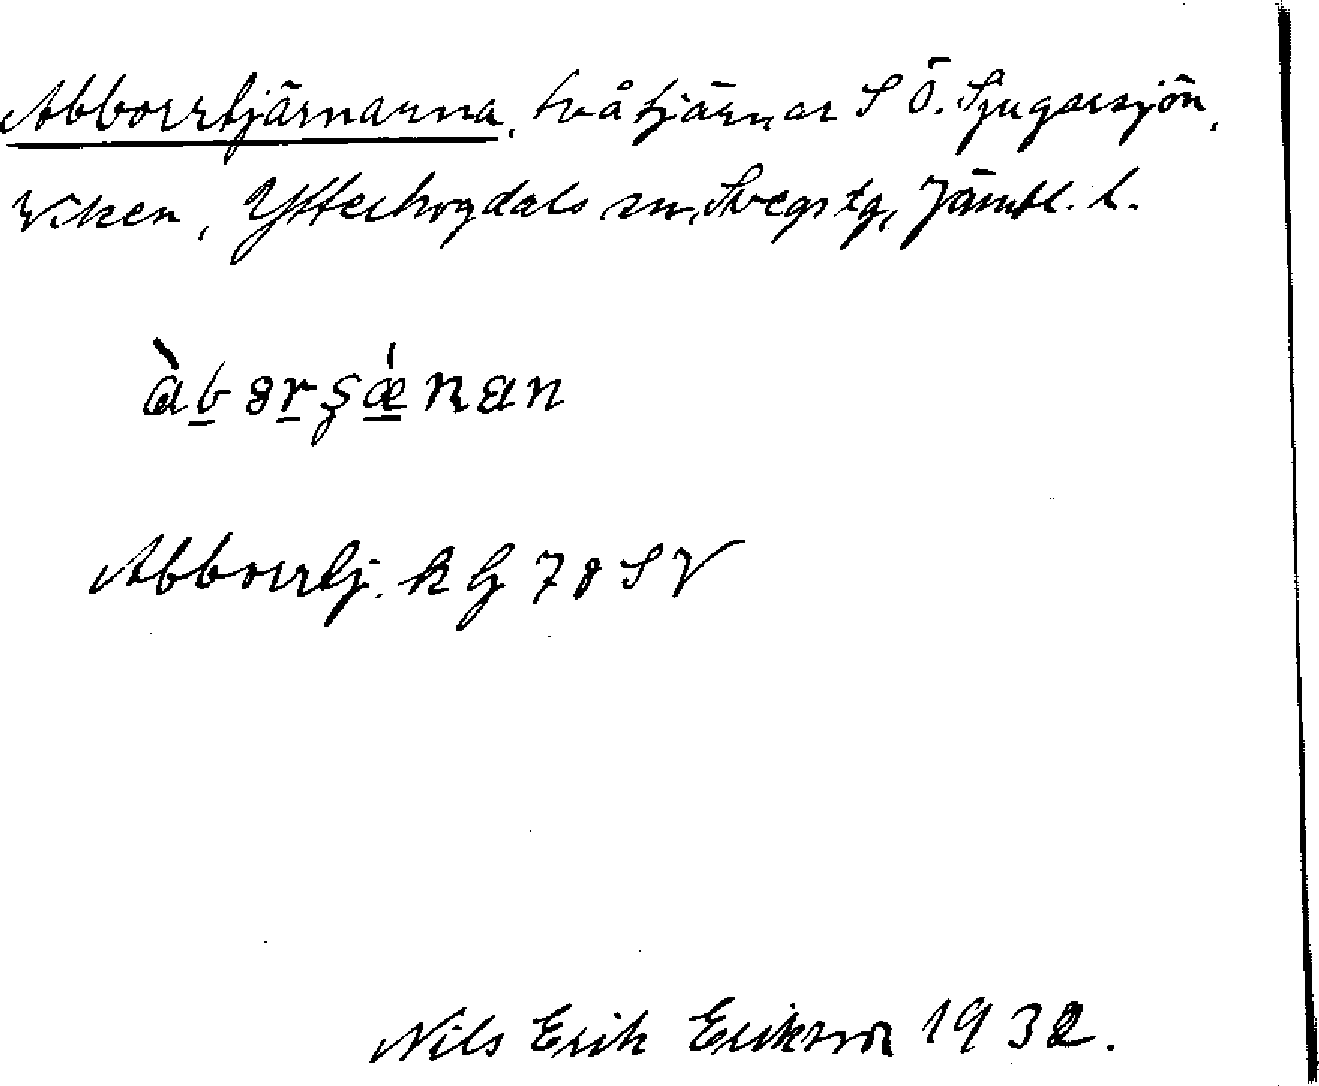 Abborrtjärnarna, två tjärnar S Ö. Sjugarsjön,
Viken, Ytterhogdals sn, Svegs tg, Jämtl. l.
àbərşǽnan
Abborrtj. kG 78 SV
Nils Erik Erikson 1932.